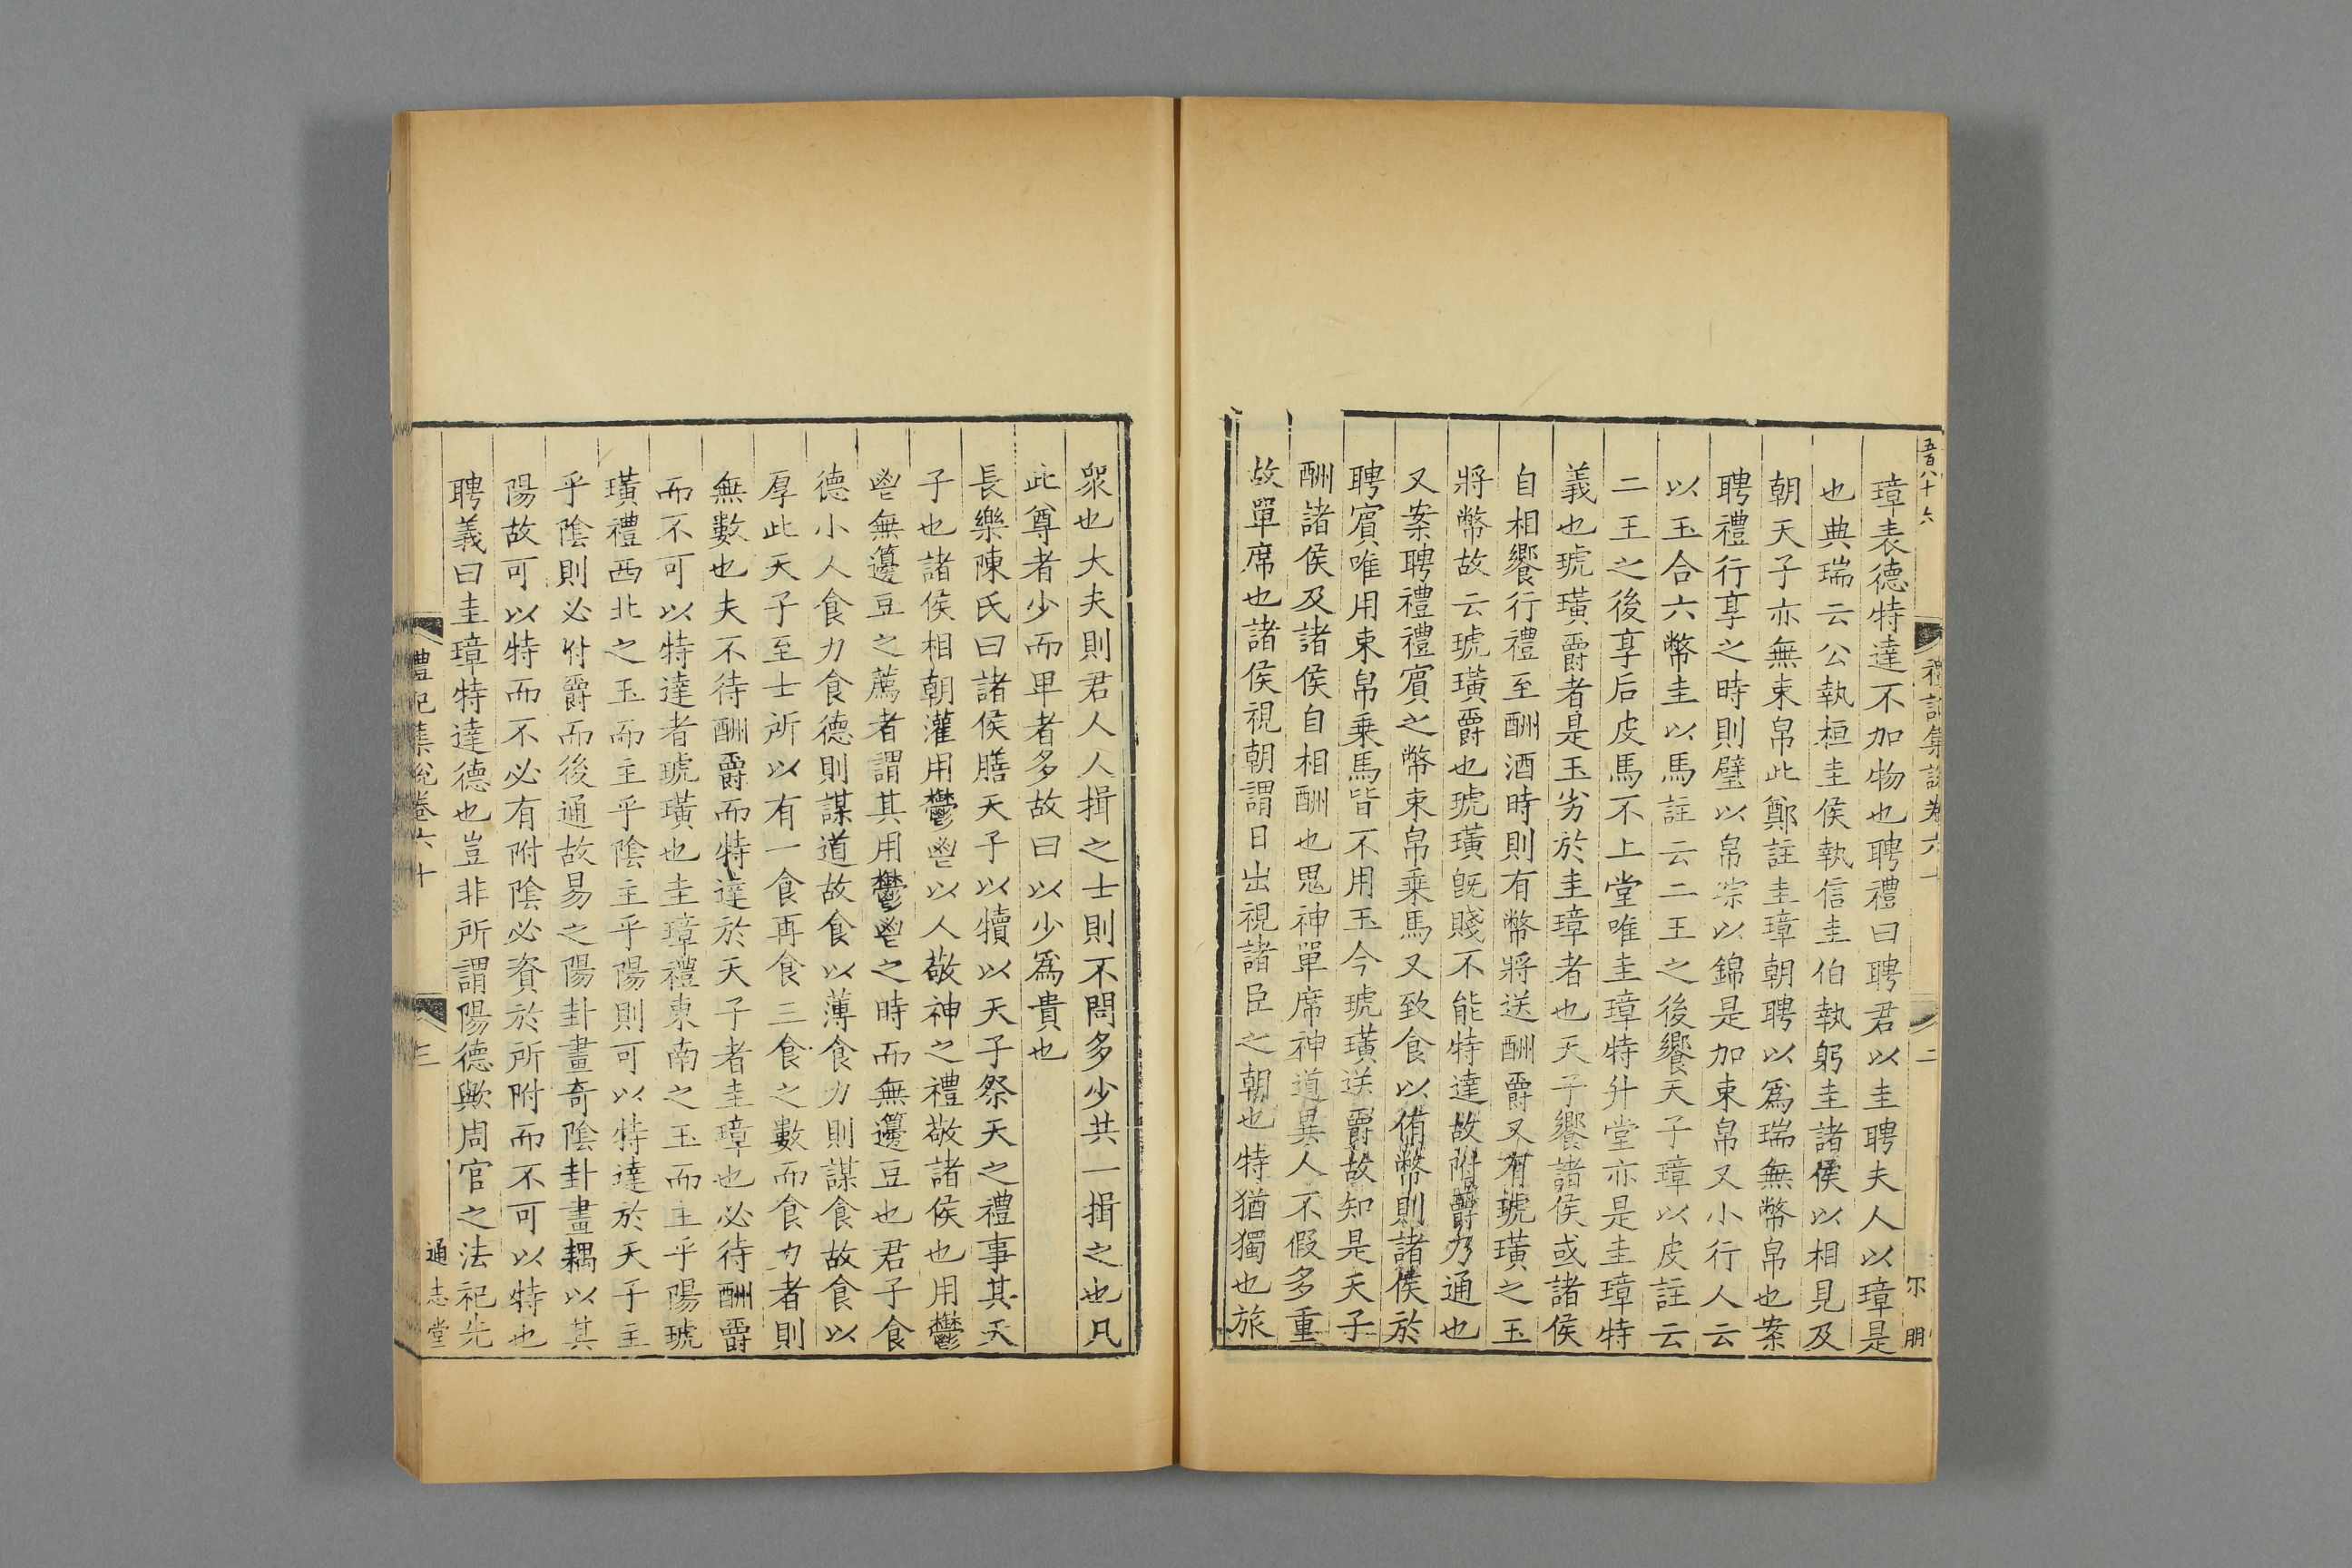 五百八十六
禮記集說卷六十
二
尔朋
璋表德特達不加物也聘禮曰聘君以圭聘夫人以璋是
也典瑞云公執桓圭侯執信圭伯執躬圭諸侯以相見及
朝天子亦無束帛此鄭註圭璋朝聘以爲瑞無幣帛也案
聘禮行享之時則璧以帛琮以錦是加束帛又小行人云
以玉合六幣圭以馬註云二王之後饗天子璋以皮註云
二王之後享后皮馬不上堂唯圭璋特升堂亦是圭璋特
義也琥璜爵者是玉劣於圭璋者也天子饗諸侯或諸侯
自相饗行禮至酬酒時則有幣將送酬爵又有琥璜之玉
將幣故云琥璜爵也琥璜旣賤不能特達故附爵乃通也
又案聘禮禮賓之幣束帛乗馬又致食以侑幣則諸侯於
聘賓唯用束帛乗馬皆不用玉今琥璜送爵故知是天子
酬諸侯及諸侯自相酬也鬼神單席神道異人不假多重
故單席也諸侯視朝謂日出視諸臣之朝也特猶獨也旅
衆也大夫則君人人揖之士則不問多少共一揖之也凡
此尊者少而卑者多故曰以少爲貴也
長樂陳氏曰諸侯膳天子以犢以天子祭天之禮事其天
子也諸侯相朝灌用鬱鬯以人敬神之禮敬諸侯也用鬱
鬯無籩豆之薦者謂其用鬱鬯之時而無籩豆也君子食
德小人食力食德則謀道故食以薄食力則謀食故食以
厚此天子至士所以有一食再食三食之數而食力者則
無數也夫不待酬爵而特達於天子者圭璋也必待酬爵
而不可以特達者琥璜也圭璋禮東南之玉而主乎陽琥
璜禮西北之玉而主乎陰主乎陽則可以特達於天子主
乎陰則必附爵而後通故易之陽卦畫奇陰卦畫耦以其
陽故可以特而不必有附陰必資於所附而不可以特也
聘義曰圭璋特達德也豈非所謂陽德歟周官之法祀先
禮記集說卷六十
三
通志堂